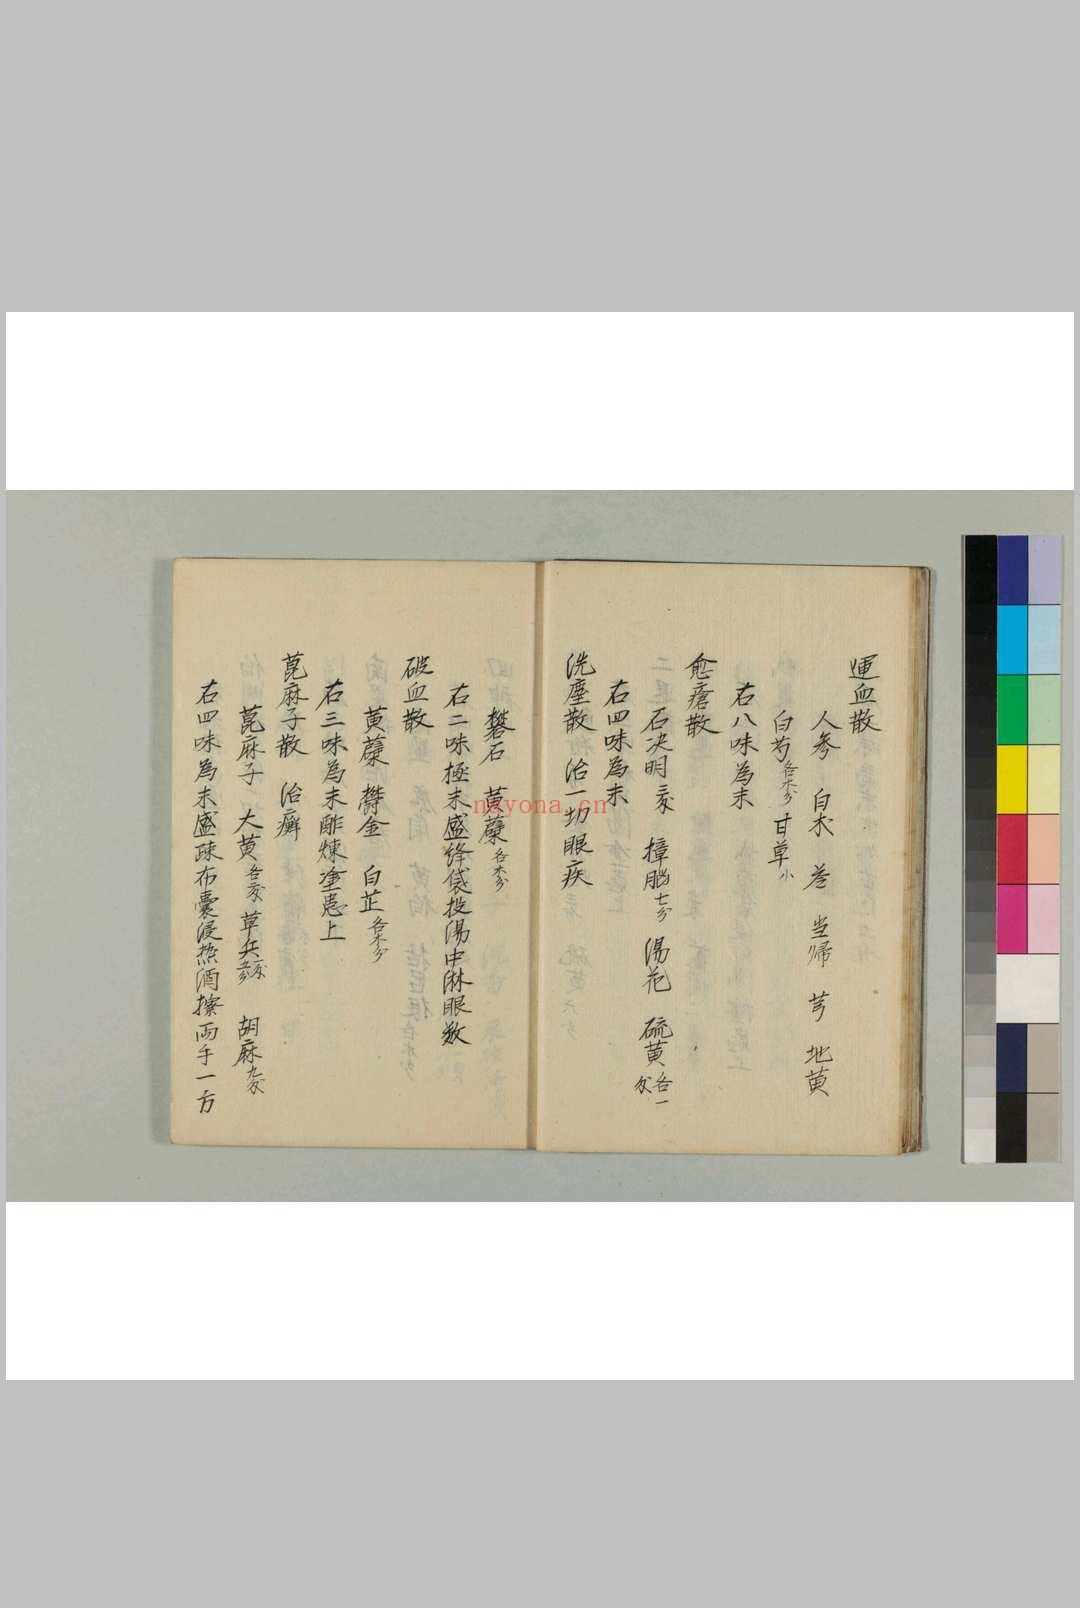 運血散
人參 白术 苍 当帰 芎 地黄
白芍各等分 甘草小
右八味為末
愈瘡散
石决明 樟脳七分 湯花 硫黄各一
右四味為末
洗塵散 治一切眼疾
礬石 黄蘗各等分
右二味極末盛絳袋投湯中淋眼数
破血散
黄蘗 欝金 白芷各等分
右三味為末酢煉塗患上
萆麻子散 治癬
萆麻子 大黄 草 胡麻
右四味為末盛疎布囊浸热酒擦両手一方
nayona.cn